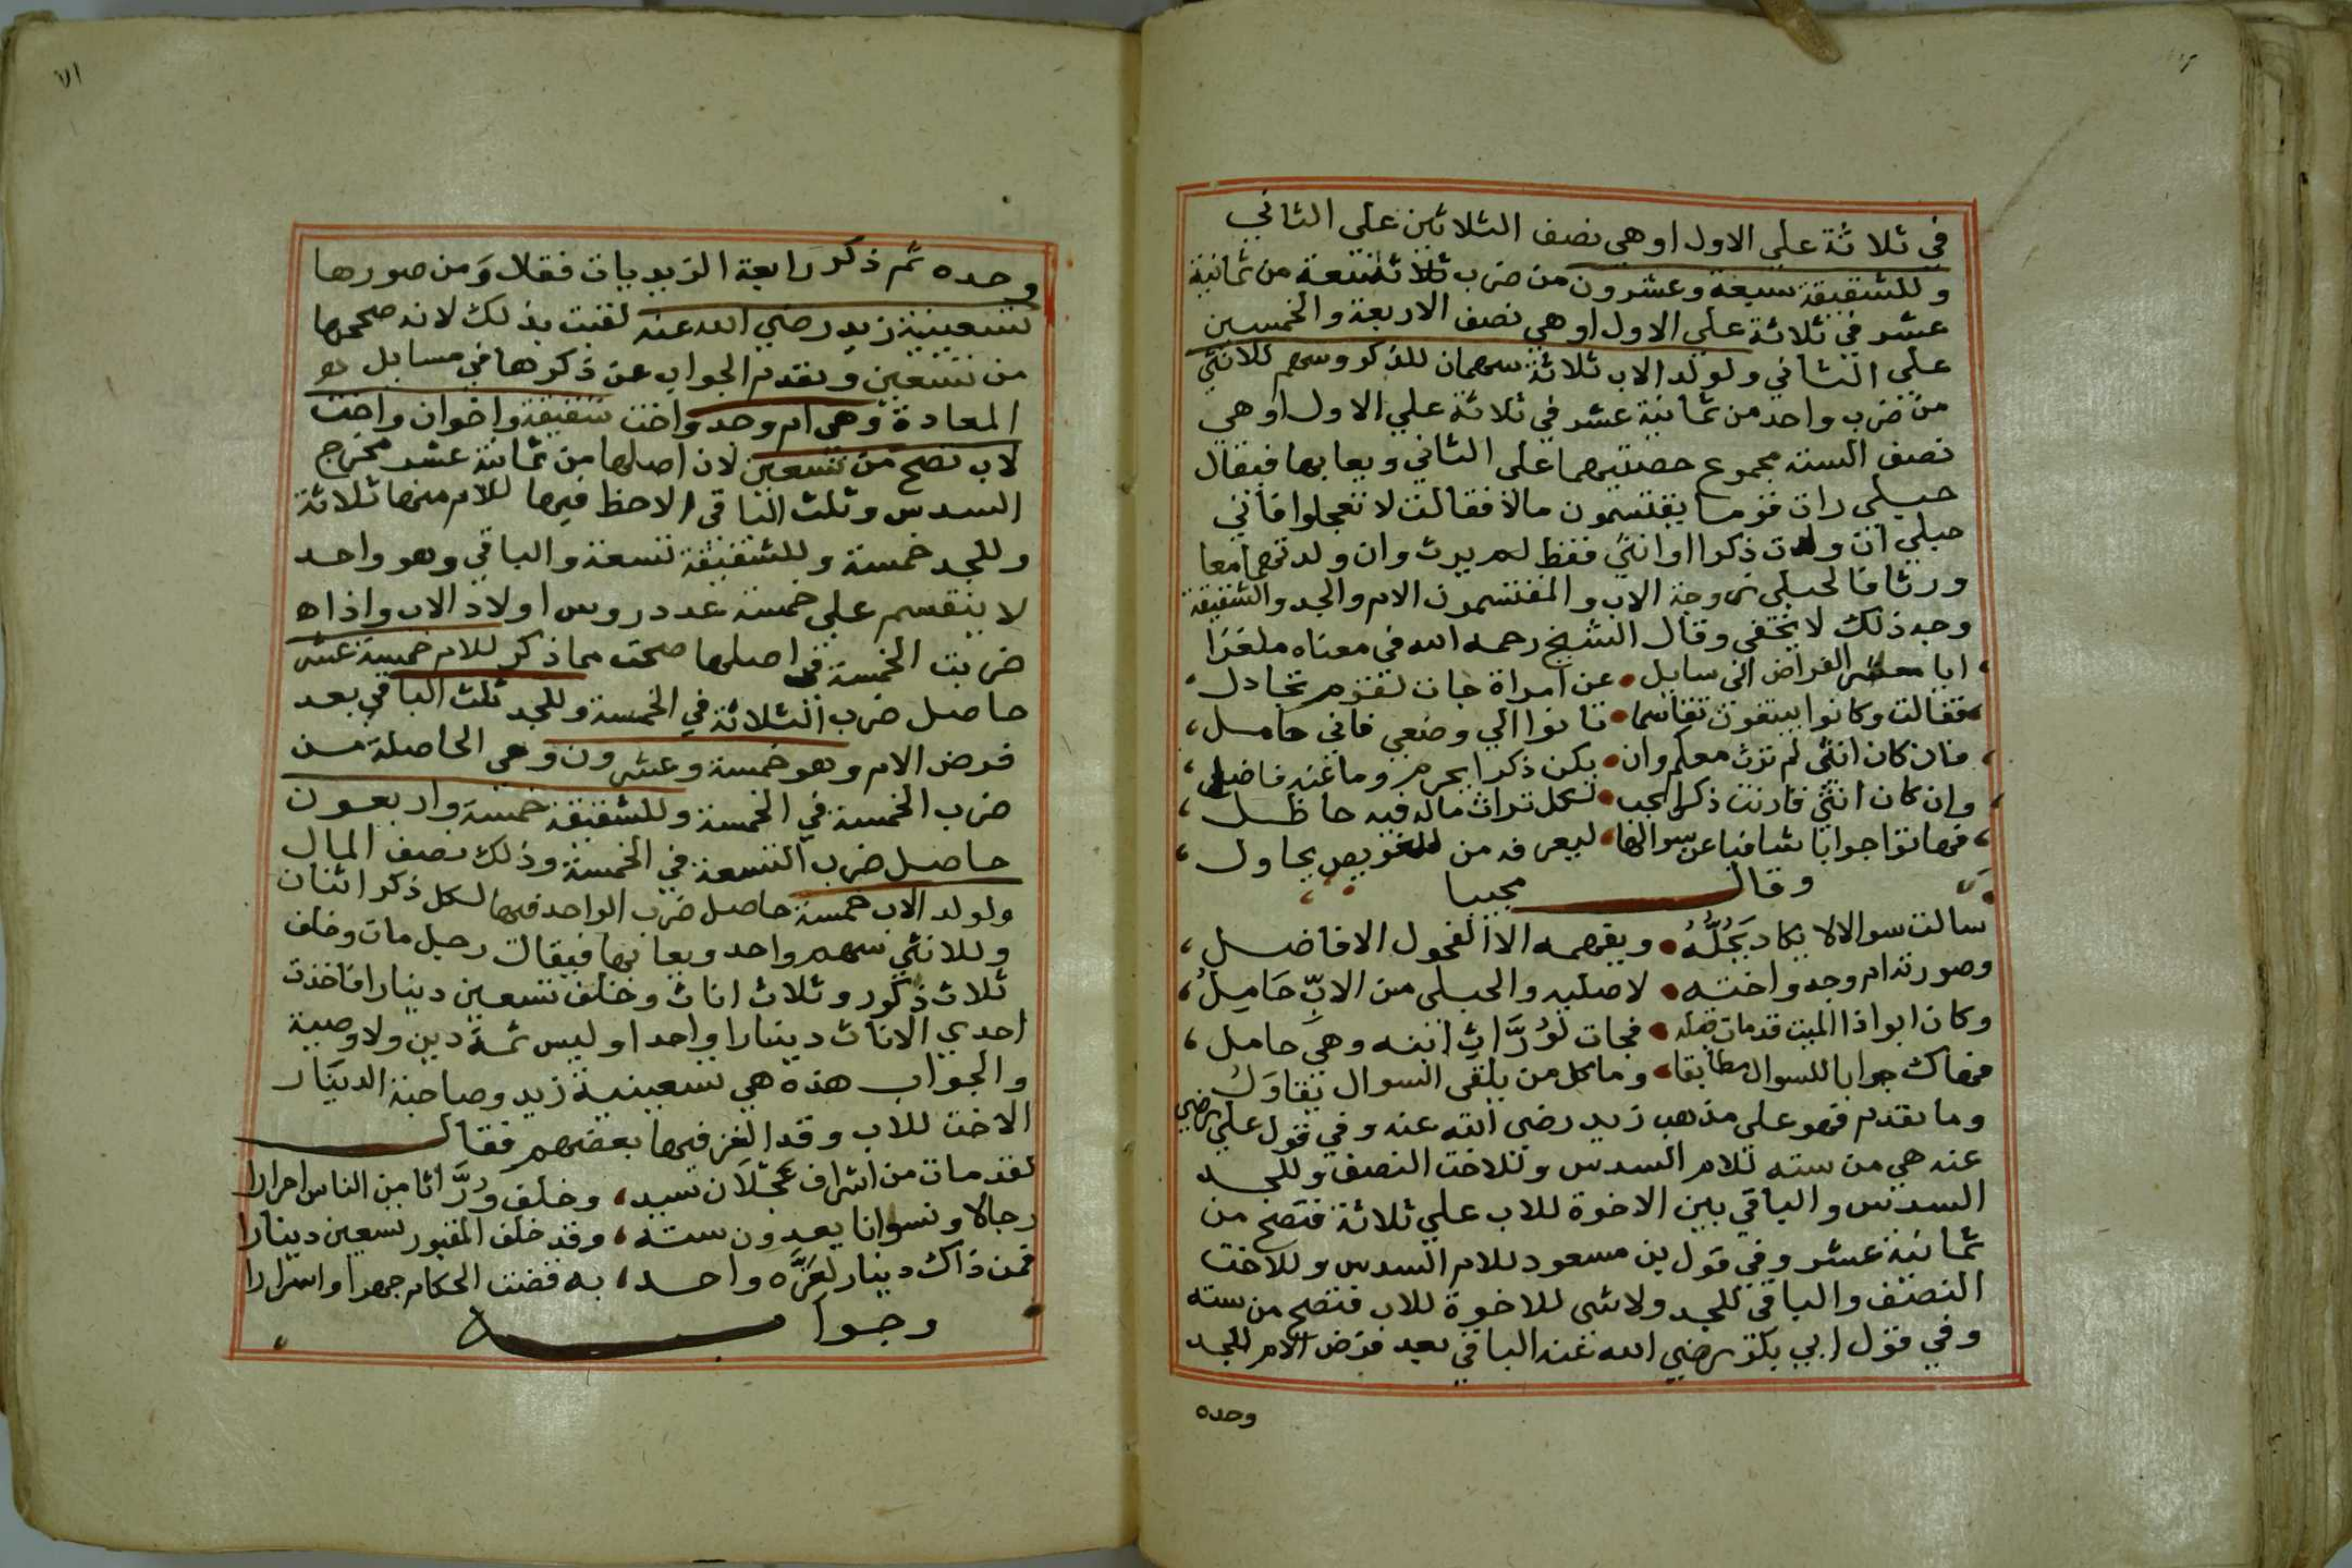 في ثلاثة علي الاول او هي نصف الثلاثين علي الثاني
وللشقيقة سبعة وعشرون من ضرب تسعة من ثمانية
عشر في ثلاثة علي الاول او هي نصف الاربعة والخمسين
علي الثاني ولولد الاب ثلاثة سهمان للذكر وسهم للانثي
من ضرب واحد من ثمانية عشر في ثلاثة علي الاول او هي
نصف الستة مجموع حصتيهما علي الثاني ويعايا بها فيقال
حبلي رات قوما يقتسمون مالا فقالت لا تعجلوا فاني
حبلي ان ولدت ذكرا او انثي فقط لم يرث وان ولدتهما معا
ورثا فالحبلي زوجة الاب والمقتسمون الام والجد والشقيقة
وجه ذلك لا يخفي وقال الشيخ رحمه الله في معناه ملغزا
ايا معشر الفراض اني سايل عن امراة جات لقوم تجادل
فقالت وكانوا يبتغون تقاسما تانوا الي وضعي فاني حامل
فان كان انثي لم ترث معكم وان يكن ذكرا يحرم وما عنه فاضل
وان كان انثي قارنت ذكرا لجب لكل تراث ماله فيه حاظل
فهاتوا جوابا شافيا عن سوالها ليعرفه من للغويص يحاول
وقال مجيبا
سالت سوالا لا يكاد يَجُلُّهُ ويفهمه الا الفحول الافاضل
وصورته ام وجد واخته لاصليه والحبلي من الابِّ حَامِيلُ
وكان ابو اذا الميت قد مات قبله فجات لوُرَّاثِ ابنه وهي حامل
فهاك جوابا للسوال مطابقا وما كل من يلقي السوال يقاوَلُ
وما تقدم فهو علي مذهب زيد رضي الله عنه وفي قول علي رضي
عنه هي من سته للام السدس وللاخت النصف وللجد
السدس والباقي بين الاخوة للاب علي ثلاثة فتصح من
ثمانية عشر وفي قول بن مسعود للام السدس وللاخت
النصف والباقي للجد ولا شي للاخوة للاب فتصح من سته
وفي قول ابي بكر رضي الله عنه الباقي بعد فرض الام للجد
وحده
وحده ثم ذكر رابعة الزيديات فقال ومن صورها
تسعينية زيد رضي الله عنه لقبت بذلك لانه صححها
من تسعين وتقدم الجواب عن ذكرها في مسايل
المعادة وهي ام وجد واخت شقيقة واخوان واخت
لاب تصح من تسعين لان اصلها من ثمانية عشر مخرج
السدس وثلث الباقي الاحظ فيها للام منها ثلاثة
وللجد خمسة وللشقيقة تسعة والباقي وهو واحد
لا ينقسم علي خمسة عدد روس اولاد الاب واذا
ضربت الخمسة في اصلها صحت مما ذكر للام خمسة عشر
حاصل ضرب الثلاثة في الخمسة وللجد ثلث الباقي بعد
فرض الام وهو خمسة وعشرون وهي الحاصلة من
ضرب الخمسة في الخمسة وللشقيقة خمسة واربعون
حاصل ضرب التسعة في الخمسة وذلك نصف المال
ولولد الاب خمسة حاصل ضرب الواحد فيها لكل ذكر اثنان
وللانثي سهم واحد ويعايا بها فيقال رجل مات وخلف
ثلاث ذكور وثلاث اناث وخلف تسعين دينارا فاخذت
احدي الاناث دينارا واحدا وليس ثمة دين ولا وصية
والجواب هذه هي تسعينية زيد وصاحبة الدينار
الاخت للاب وقد الغز فيها بعضهم فقال
لقد مات من اشراف عجلان سيد وخلف وُرَّاثا من الناس احرارا
رجالا ونسوانا يعدون سته وقد خلف المقبور تسعين دينارا
فمن ذاك دينار لعَزَّه واحد به قضت الحكام جهرا واسرارا
وجوابه